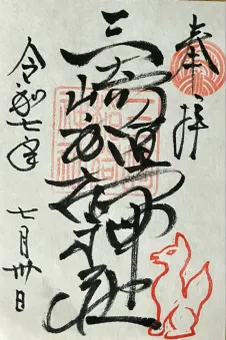 奉拝
三崎稲荷神社
令和七年 七月卅日